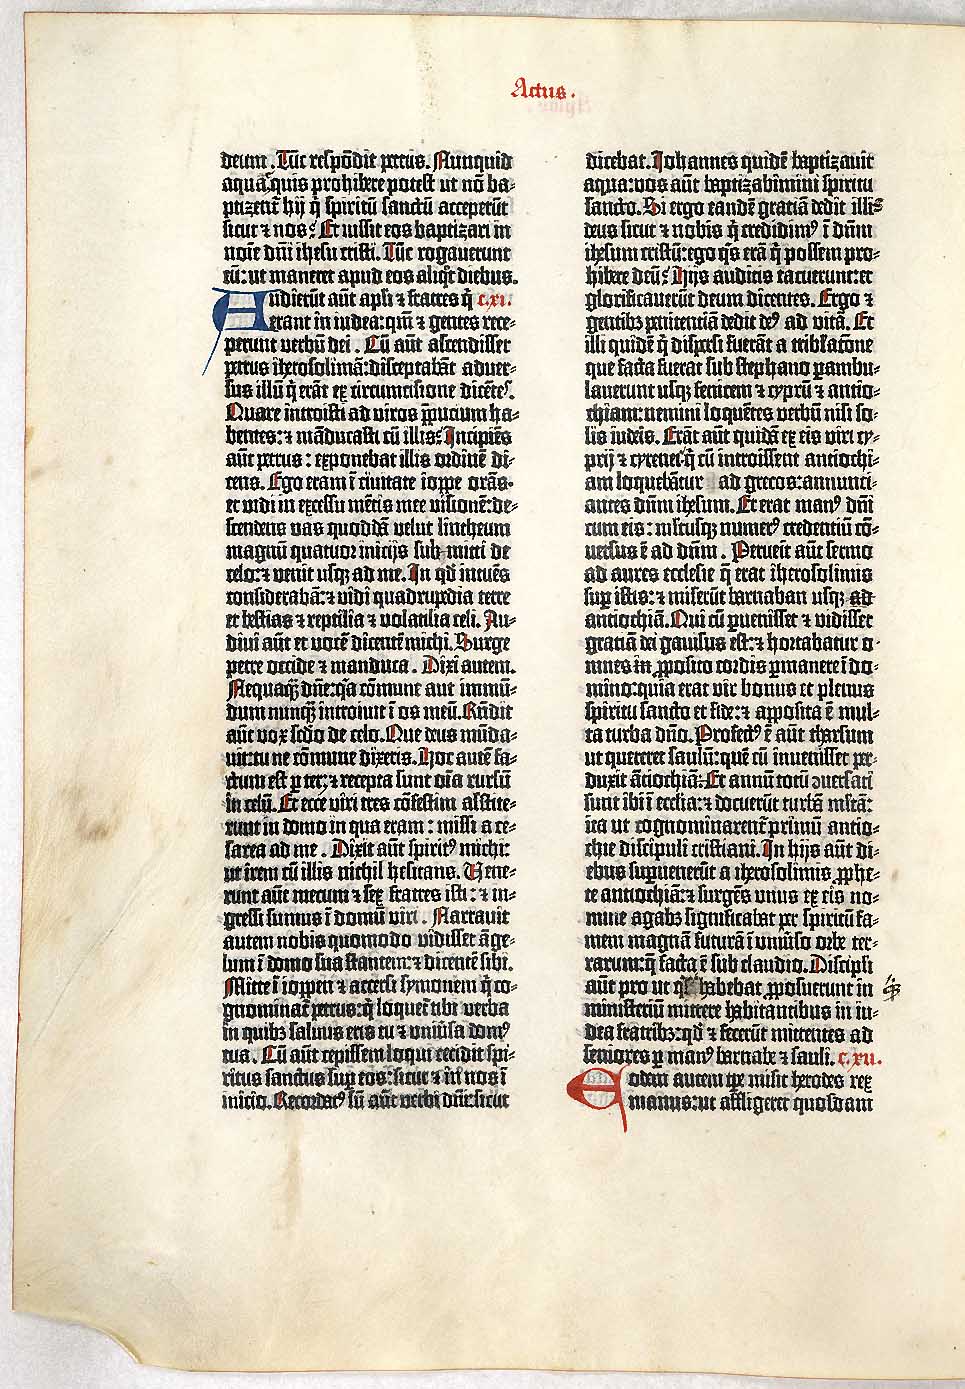 Actus.
deum. Tūc respōdit petrus. Nunquid
aquā quis prohibere potest ut nō ba-
ptizent̄ hij q̄ spiritū sanctū acceperūt
sicut ⁊ nos? Et iussit eos baptizari in
noīe dn̄i ihesu cristi. Tūc rogauerunt
eū: ut maneret apud eos aliq̄t diebus.
Audierūt aūt apl̄i ⁊ fratres q̄ c.xi.
erant in iudea: qm̄ ⁊ gentes rece-
perunt verbū dei. Cū aūt ascendisset
petrus iherosolimā: disceptabāt aduer-
sus illū q̄ erāt ex circumcisione dicētes.
Quare introisti ad viros p̄pucium ha-
bentes: ⁊ māducasti cū illis? Incipiēs
aūt petrus: exponebat illis ordinē di-
cens. Ego eram ī ciuitate ioppe orās.
et vidi in excessu mētis mee visionē: de-
scendens vas quoddā velut lintheum
magnū quatuor inicijs submitti de
celo: ⁊ venit usq; ad me. In qd̄ intuēs
considerabā: ⁊ vidi quadrupedia terre
et bestias ⁊ reptilia ⁊ volatilia celi. Au-
diui aūt et vocē dicentē michi. Surge
petre occide ⁊ manduca. Dixi autem.
Nequaq̄ dn̄e: q̄a cōmune aut immū-
dum nunq̄ introiuit ī os meū. Rn̄dit
aūt vox scd̄o de celo. Que deus mūda-
uit: tu ne cōmune dixeris. Hoc autē fa-
ctum est p̱ ter: ⁊ recepta sunt oīa rursū
in celū. Et ecce viri tres cōfestim astite-
runt in domo in qua eram: missi a ce-
sarea ad me. Dixit aūt spiritꝰ michi:
ut irem cū illis nichil hesitans. Uene-
runt aūt mecum ⁊ sex fratres isti: ⁊ in-
gressi sumus ī domū viri. Narrauit
autem nobis quomodo vidisset āge-
lum ī domo sua stantem: ⁊ dicentē sibi.
Mitte ī ioppen ⁊ accersi symonem q̄ co-
gnominat̄ petrus: q̄ loquet̄ tibi verba
in quibꝫ saluus eris tu ⁊ vniūsa domꝰ
tua. Cū aūt cepissem loqui cecidit spi-
ritus sanctus sup̱ eos: sicut ⁊ in nos ī
inicio. Recordatꝰ sū aūt verbi dn̄i: sicut
dicebat. Johannes quidē baptizauit
aqua: vos aūt baptizabimini spiritu
sancto. Si ergo eandē gratiā dedit illis
deus sicut ⁊ nobis q̄ credidimꝰ ī dn̄m
ihesum cristū: ego q̄s erā q̄ possem pro-
hibere deū? Hijs auditis tacuerunt: et
glorificauerūt deum dicentes. Ergo ⁊
gentibꝫ penitentiā dedit deꝰ ad vitā. Et
illi quidē q̄ dispersi fuerāt a tribl̄atōne
que facta fuerat sub stephano p̱ambu-
lauerunt usq; fenicem ⁊ cyprū ⁊ antio-
chiam: nemini loquētes verbū nisi so-
lis iudeis. Erāt aūt quidā ex eis viri cy-
prij ⁊ cyrenei: q̄ cū introissent antiochi-
am loquebātur ad grecos: annunci-
antes dn̄m ihesum. Et erat manꝰ dn̄i
cum eis: multusq; numerꝰ credentiū cō-
uersus ē ad dn̄m. Peruenit aūt sermo
ad aures ecclesie q̄ erat iherosolimis
sup̱ istis: ⁊ miserūt barnaban usq; ad
antiochiā. Qui cū p̱uenisset ⁊ vidisset
gratiā dei gauisus est: ⁊ hortabatur o-
mnes in p̱posito cordis p̱manere ī do-
mino: quia erat vir bonus et plenus
spiritu sancto et fide: ⁊ apposita ē mul-
ta turba dn̄o. Profectꝰ ē aūt tharsum
ut quereret saulū: quē cū inuenisset per-
duxit ātiochiā. Et annū totū ꝯuersati
sunt ibi ī ecclīa: ⁊ docuerūt turbā ml̄tā:
ita ut cognominarent̄ primū antio-
chie discipuli cristiani. In hijs aūt di-
ebus sup̱uenerūt a iherosolimis p̱phe-
te antiochiā: ⁊ surgēs vnus ex eis no-
mine agabꝫ significabat per spiritū fa-
mem magnā futurā ī vniūso orbe ter-
rarum: q̄ facta ē sub claudio. Discipl̄i
aūt pro ut q̄s habebat p̱posuerunt in
ministeriū mittere habitantibus in iu-
dea fratribꝫ: qd̄ ⁊ fecerūt mittentes ad
seniores p̱ manꝰ barnabe ⁊ sauli. c.xii.
Eodem autem tp̄e misit herodes rex
manus: ut affligeret quosdam